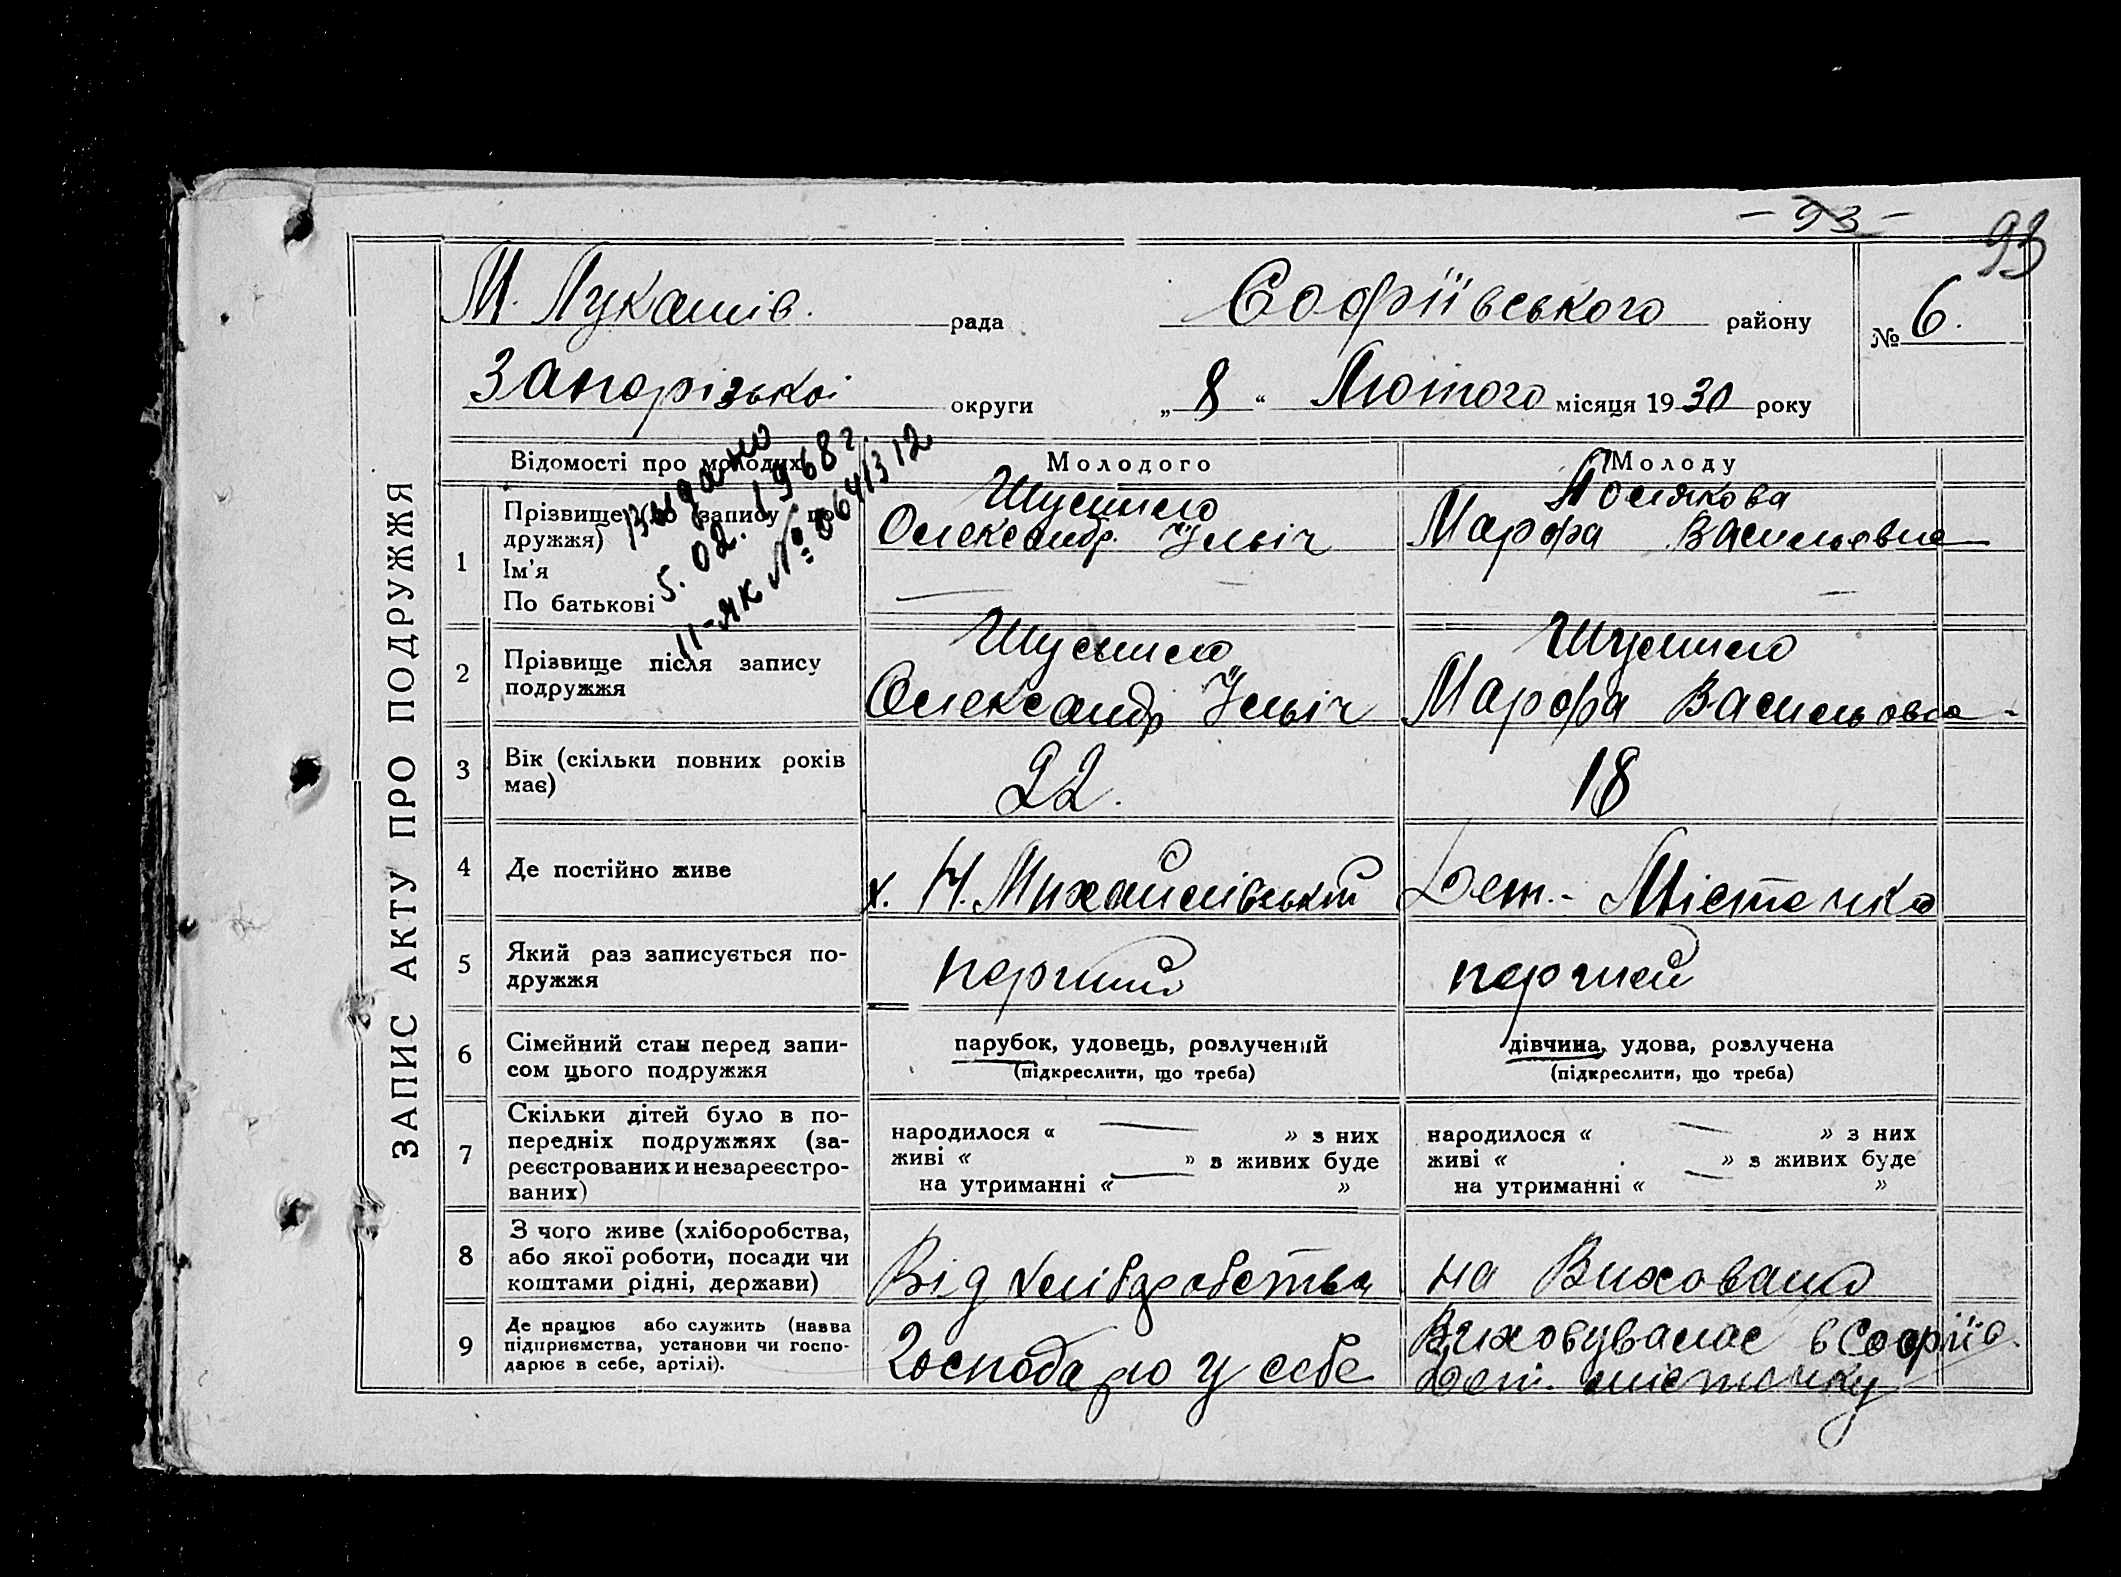 - 93 -
93
М. Лукашів. рада Софіївського району № 6.
Запорізької округи „ 8 “ Лютого місяця 1930 року
ЗАПИС АКТУ ПРО ПОДРУЖЖЯ
Видано
5. 02. 1968 г.
II-ЯК № 0641312
Відомості про молодих Молодого Молоду
1 Прізвище (до запису по-
дружжя)
Ім'я
По батькові
Олександр. Ільіч
Марфа Васильевна
2 Прізвище після запису
подружжя
Олександр Ільіч
Марфа Васильовна
3 Вік (скільки повних років
має)
22.
18
4 Де постійно живе
х. Н. Михайлівський
Дет. - Містечко
5 Який раз записується по-
дружжя
перший
перший
6 Сімейний стан перед запи-
сом цього подружжя
парубок, удовець, розлучений
(підкреслити, що треба)
дівчина, удова, розлучена
(підкреслити, що треба)
7 Скільки дітей було в по-
передніх подружжях (за-
реєстрованих и незареєстро-
ваних)
народилося « — » з них
живі « » з живих буде
на утриманні « — »
народилося « — » з них
живі « » з живих буде
на утриманні « — »
8 З чого живе (хліборобства,
або якої роботи, посади чи
коштами рідні, держави)
Від хліборобства
на
9 Де працює або служить (назва
підприємства, установи чи госпо-
дарює в себе, артілі).
Господарю у себе
Виховувалас в Софіїв.
Дет. містечку